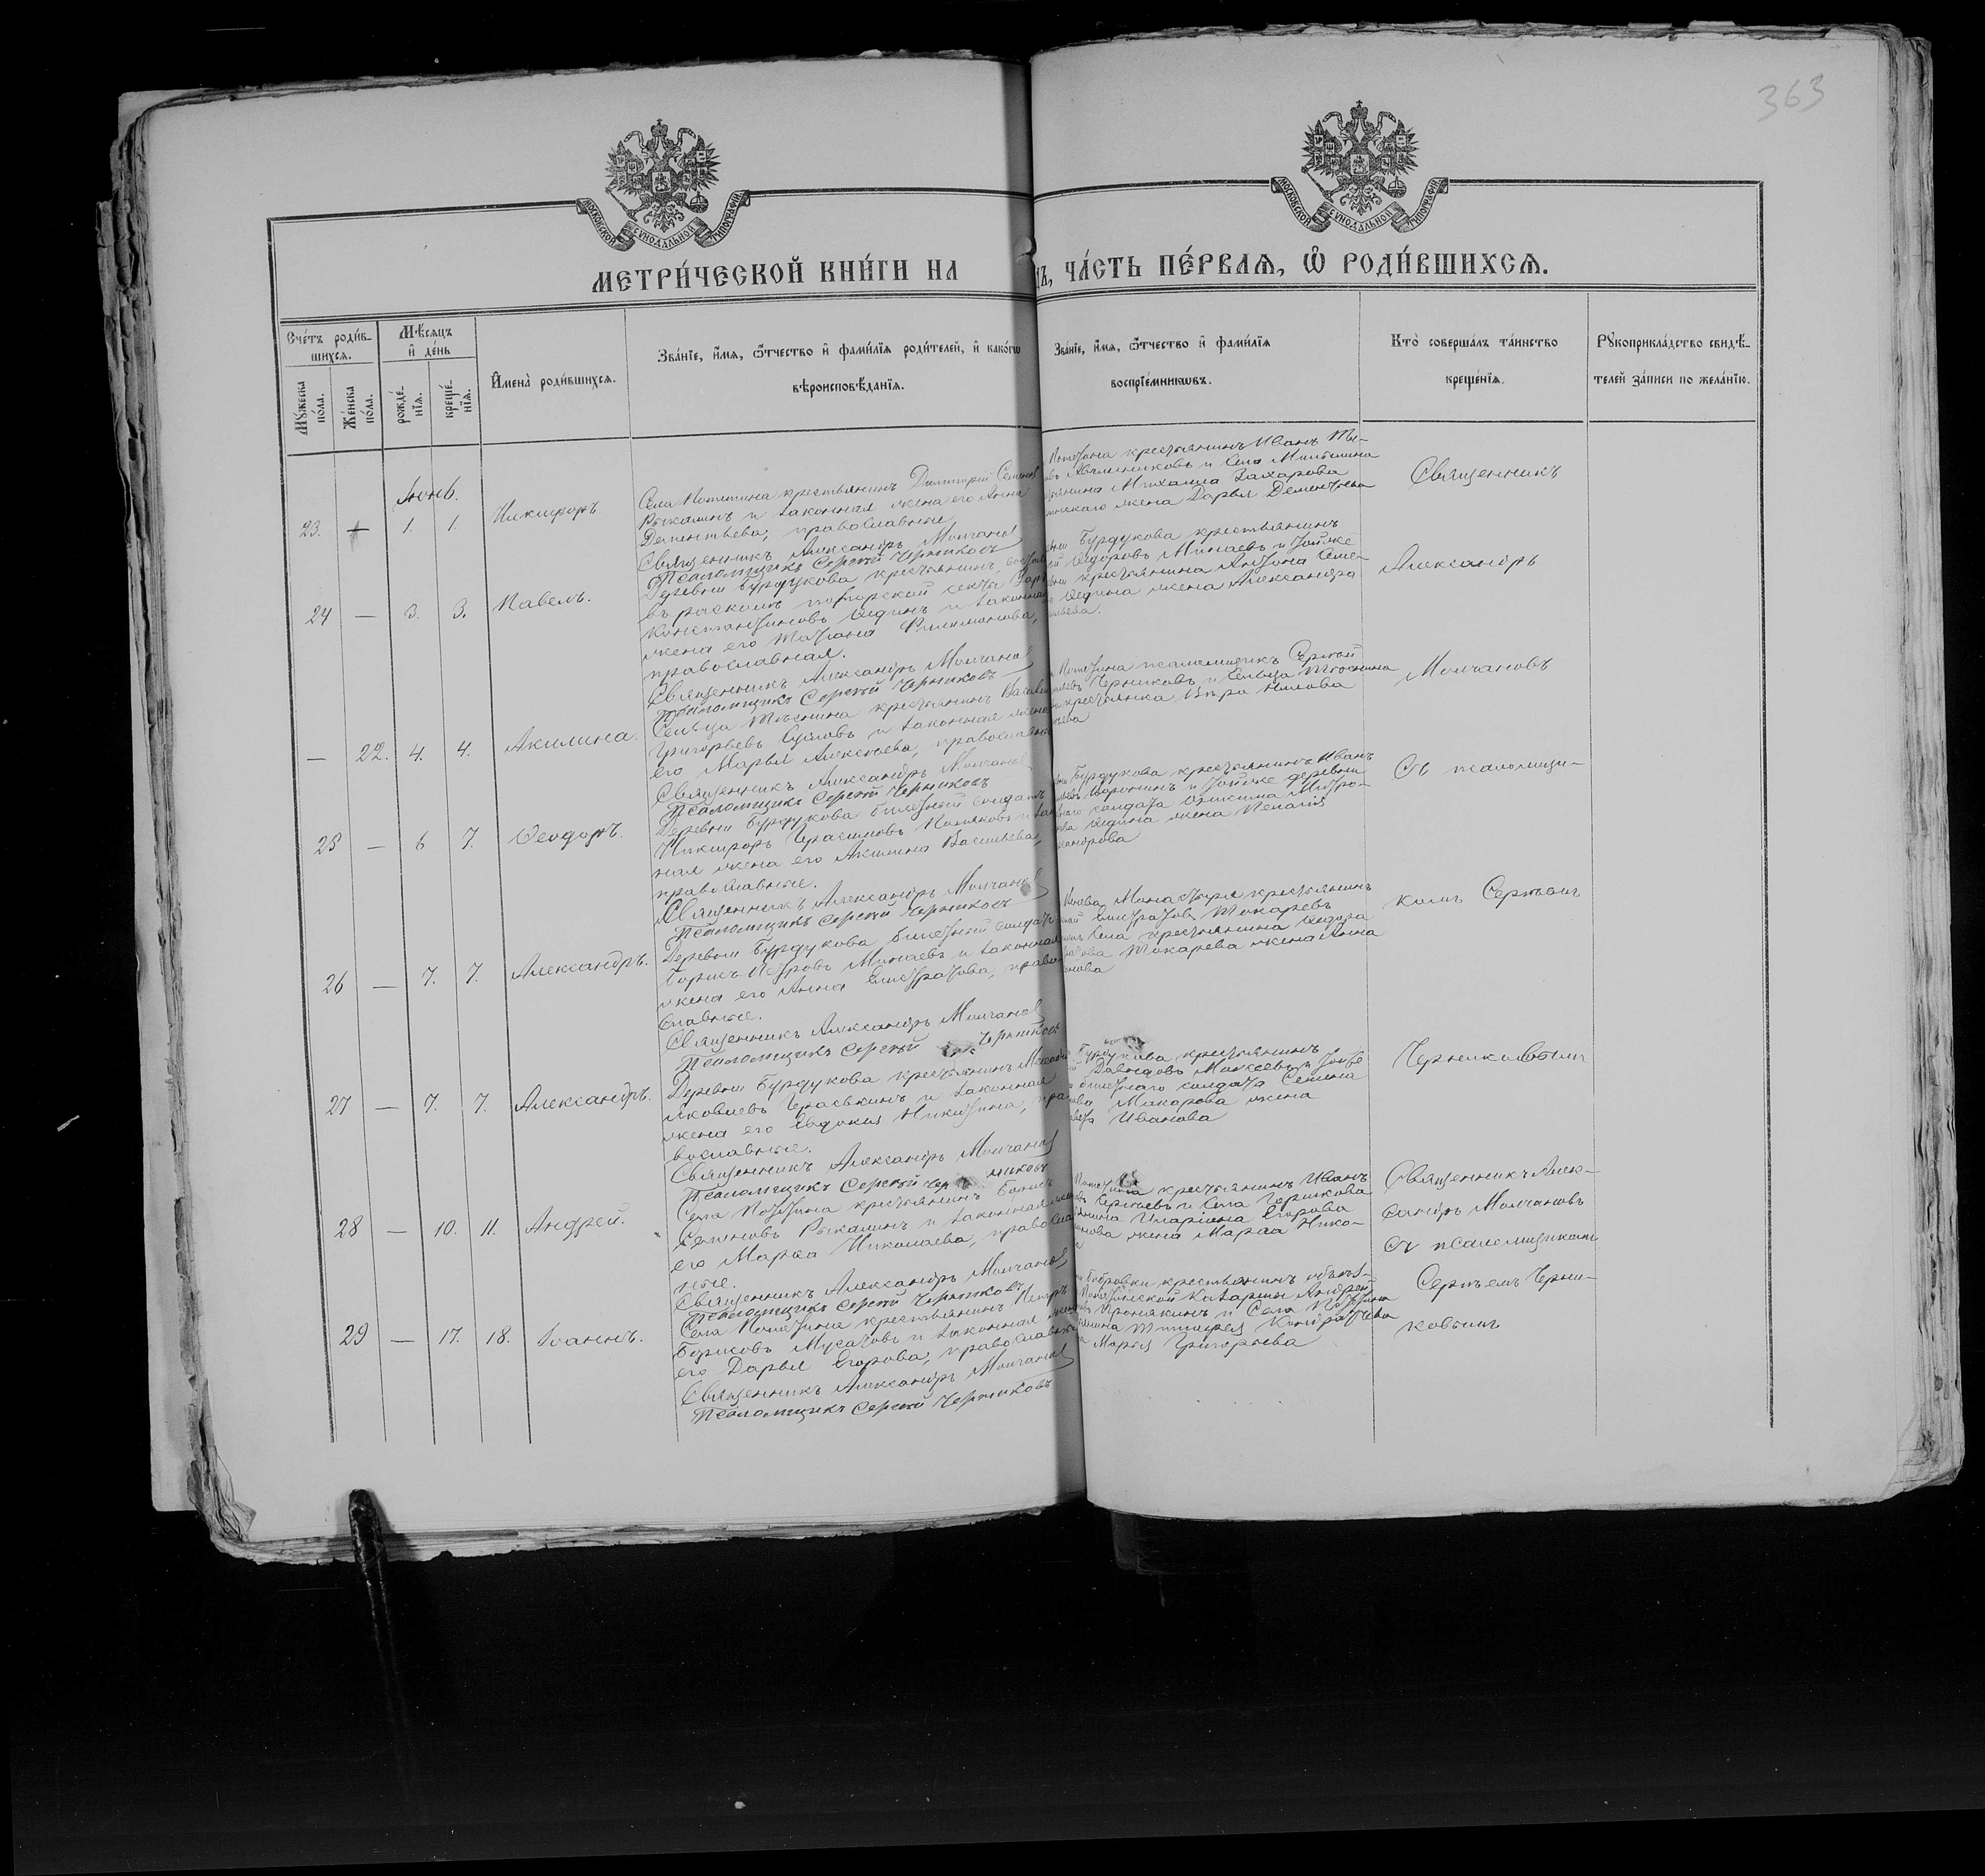 363
МОСКОВСКОЙ СѴНОДАЛЬНОЙ ТИПОГРАФІИ
МОСКОВСКОЙ СѴНОДАЛЬНОЙ ТИПОГРАФІИ
МЕТРИ́ЧЕСКОЙ КНИ́ГИ НА
Ъ, ЧА́СТЬ ПЕ́РВАѦ, Ѽ РОДИ́ВШИХСѦ.
Сче́тъ роди́в-
шихсѧ.
Мѣ́сѧцъ
и҆ де́нь
Мꙋ́жеска по́ла.
Же́нска по́ла.
рожде́-
нїѧ.
креще́-
нїѧ.
И҆мена̀ роди́вшихсѧ.
Зва́нїе, и҆́мѧ, ѻ҆́тчество и҆ фами́лїѧ роди́телей, и҆ како́гѡ
вѣроисповѣ́данїѧ.
Зва́нїе, и҆́мѧ, ѻ҆́тчество и҆ фами́лїѧ
воспрїе́мникѡвъ.
Кто̀ соверша́лъ та́инство
креще́нїѧ.
Рꙋкоприкла́дство свидѣ́-
телей за́писи по жела́нїю.
Іюнь.
23. — 1. 1. Никифоръ
Села Потетина крестьянинъ Димитрій Семенов
Рыкалинъ и законная жена его Анна
Дементьева, православные
Священникъ Александръ Молчанов
Псаломщикъ Сергѣй Черниковъ
крестьянинъ Иванъ
и Села
Михаила Захарова
жена Дарья Дементьева
Священникъ
24 — 3. 3. Павелъ.
Деревни Бурдукова крестьянинъ,
въ расколѣ поморской секты
Константиновъ и законная
жена его Татіана Филимонова,
православная.
Священникъ Александръ Молчанов
Псаломщикъ Сергѣй Черниковъ
Бурдукова крестьянинъ
Ѳедоровъ Минаевъ и тойже
крестьянина Антона Семе-
жена Александра
Александръ
— 22. 4. 4. Акилина.
Сельца крестьянинъ
Григорьевъ и законная жена
его Марья Алексѣева,
Священникъ Александръ Молчанов
Псаломщикъ Сергѣй Черниковъ
псаломщикъ Сергѣй
Черниковъ и Сельца
крестьянка Вѣра Нилова
Молчановъ
25 — 6 7. Ѳеодоръ.
Деревни Бурдукова билетный солдатъ
Никифоръ Герасимовъ Поляковъ и
ная жена его Акилина Васильева,
православные.
Священникъ Александръ Молчанов
Псаломщикъ Сергѣй Черниковъ
Бурдукова крестьянинъ Иванъ
и тойже деревни
солдата Онисима Митро-
жена
Съ псаломщи-
26 — 7. 7. Александръ.
Деревни Бурдукова билетный солдатъ
Борисъ Петровъ Минаевъ и законная
жена его Анна Елистратова, право-
славные.
Священникъ Александръ Молчанов
Псаломщикъ Сергѣй Черниковъ
Монастыря крестьянинъ
Елистратовъ Токаревъ
Села крестьянина Ѳедора
Токарева жена Анна
комъ Сергѣемъ
27 — 7. 7. Александръ.
Деревни Бурдукова крестьянинъ
Яковлевъ Гераськинъ и законная
жена его Евдокия Никитина, пра-
вославные.
Священникъ Александръ Молчанов
Псаломщикъ Сергѣй Черниковъ
Бурдукова крестьянинъ
Давыдовъ Моисеевъ и тойже
билетнаго солдата Семена
Макарова жена
Иванова
Черниковымъ
28 — 10. 11. Андрей.
Села Потетина крестьянинъ Борисъ
Семеновъ Рыкалинъ и законная жена
его Марѳа Николаева, православ
ные.
Священникъ Александръ Молчанов
Псаломщикъ Сергѣй Черниковъ
крестьянинъ Иванъ
Сергѣевъ и Села Горшкова
Иларіона Егорова
жена Марѳа Нико-
Священникъ Алек-
сандръ Молчановъ
съ псаломщикомъ
29 — 17. 18. Іоаннъ.
Села Потетина крестьянинъ Петръ
Борисовъ Мусатовъ и законная жена
его Дарья Егорова, православные
Священникъ Александръ Молчанов
Псаломщикъ Сергѣй Черниковъ
Бобровки крестьянинъ
Андрей
и Села Потетина
Тимофея Кондратьева
Марья Григорьева
Сергѣемъ Черни-
ковымъ